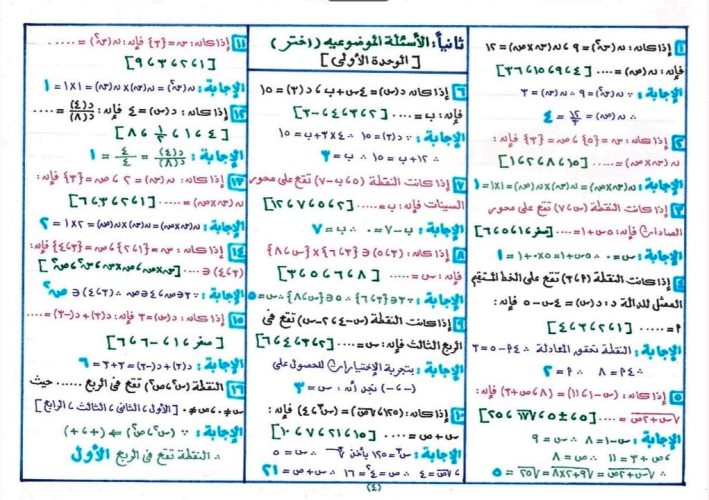 ثانياً: الأسئلة الموضوعيه ((اختر))
[الوحدة الأولى]
١ إذا كان: ن(س٢) = ٩ ، ن(س×ص) = ١٢
فإنه: ن(ص) = .... [٤ ، ٩ ، ١٥ ، ٣٦]
الإجابة: ∵ ن(س٢) = ٩ ∴ ن(س) = ٣
∴ ن(ص) = ١٢/٣ = ٤
٢ إذا كان: س = {٥} ، ص = {٣} فإنه:
ن(س×ص) = ..... [١٥ ، ٨ ، ٢ ، ١]
الإجابة: ن(س×ص) = ن(س)×ن(ص) = ١×١ = ١
٣ إذا كانت النقطة (س ، ٧) تقع على محور
الصادات فإنه: ٥س + ١ = .... [صفر ، ١ ، ٥ ، ٦]
الإجابة: س = ٠ ∴ ٥س + ١ = ٠ + ١ = ١
٤ إذا كانت النقطة (٢ ، ٣) تقع على الخط المستقيم
الممثل للدالة د: د(س) = ٤س - ٥ فإنه:
٢ = ..... [١ ، ٢ ، ٣ ، ٤]
الإجابة: النقطة تحقق المعادلة ∴ ٤٢ - ٥ = ٣
∴ ٤٢ = ٨ ∴ ٢ = ٢
٥ إذا كان: (س - ١ ، ١١) = (٨ ، ص + ٣) فإنه:
√(س + ٢ص) = .....
الإجابة: س - ١ = ٨ ∴ س = ٩
، ص + ٣ = ١١ ∴ ص = ٨
∴ √(س + ٢ص) = √(٩ + ٢×٨) = √٢٥ = ٥
٦ إذا كان د(س) = ٤س + ب ، د(٣) = ١٥
فإنه: ب = .... [٢ ، ٣ ، ٤ ، -٣]
الإجابة: ∵ د(٣) = ١٥ ∴ ٤×٣ + ب = ١٥
∴ ١٢ + ب = ١٥ ∴ ب = ٣
٧ إذا كانت النقطة (٥ ، ب - ٧) تقع على محور
السينات فإنه: ب = .... [٢ ، ٥ ، ٧ ، ١٢]
الإجابة: ب - ٧ = ٠ ∴ ب = ٧
٨ إذا كان: (٣ ، ٥) ∈ {٣ ، ٦}×{س ، ٨}
فإنه: س = ..... [٨ ، ٦ ، ٥ ، ٣]
الإجابة: ∵ ٣ ∈ {٣ ، ٦} ∴ ٥ ∈ {س ، ٨} ∴ س = ٥
٩ إذا كانت النقطة (س - ٤ ، ٢ - س) تقع فى
الربع الثالث فإنه: س = .... [٢ ، ٣ ، ٤ ، ٦]
الإجابة: بتجربة الإختيارات للحصول على
(- ، -) نجد أن: س = ٣
١٠ إذا كان: (١٢٥ ، √ص) = (س٣ ، ٤) فإنه:
س + ص = .....
الإجابة: س٣ = ١٢٥ بأخذ ∴ س = ٥
، √ص = ٤ ∴ ص = ٤٢ = ١٦ ∴ س + ص = ٢١
١١ إذا كان: س = {٣} فإنه: ن(س٢) = .....
[١ ، ٢ ، ٣ ، ٩]
الإجابة: ن(س٢) = ن(س)×ن(س) = ١×١ = ١
١٢ إذا كان: د(س) = ٤ فإنه: د(٤)/د(٨) = ....
[٤ ، ١ ، ١/٢ ، ٨]
الإجابة: د(٤)/د(٨) = ٤/٤ = ١
١٣ إذا كان: ن(س) = ٢ ، ص = {٣} فإنه:
ن(س×ص) = ..... [١ ، ٢ ، ٣ ، ٦]
الإجابة: ن(س×ص) = ن(س)×ن(ص) = ٢×١ = ٢
١٤ إذا كان: س = {١ ، ٢} ، ص = {٣ ، ٤} فإنه:
(٣ ، ٤) ∈ .... [س×ص ، ص×س ، س٢ ، ص٢]
الإجابة: ∵ ٣ ∈ ص ، ٤ ∈ ص ∴ (٣ ، ٤) ∈ ص٢
١٥ إذا كان: د(س) = ٣ فإنه: د(٣) + د(-٣) = ....
[صفر ، ١ ، -٦ ، ٦]
الإجابة: د(٣) + د(-٣) = ٣ + ٣ = ٦
١٦ النقطة (س٢ ، ص٢) تقع فى الربع ..... حيث
س ≠ ٠ ، ص ≠ ٠ [الأول ، الثانى ، الثالث ، الرابع]
الإجابة: ∵ (س٢ ، ص٢) ⇐ (+ ، +)
∴ النقطة تقع فى الربع الأول
(٤)